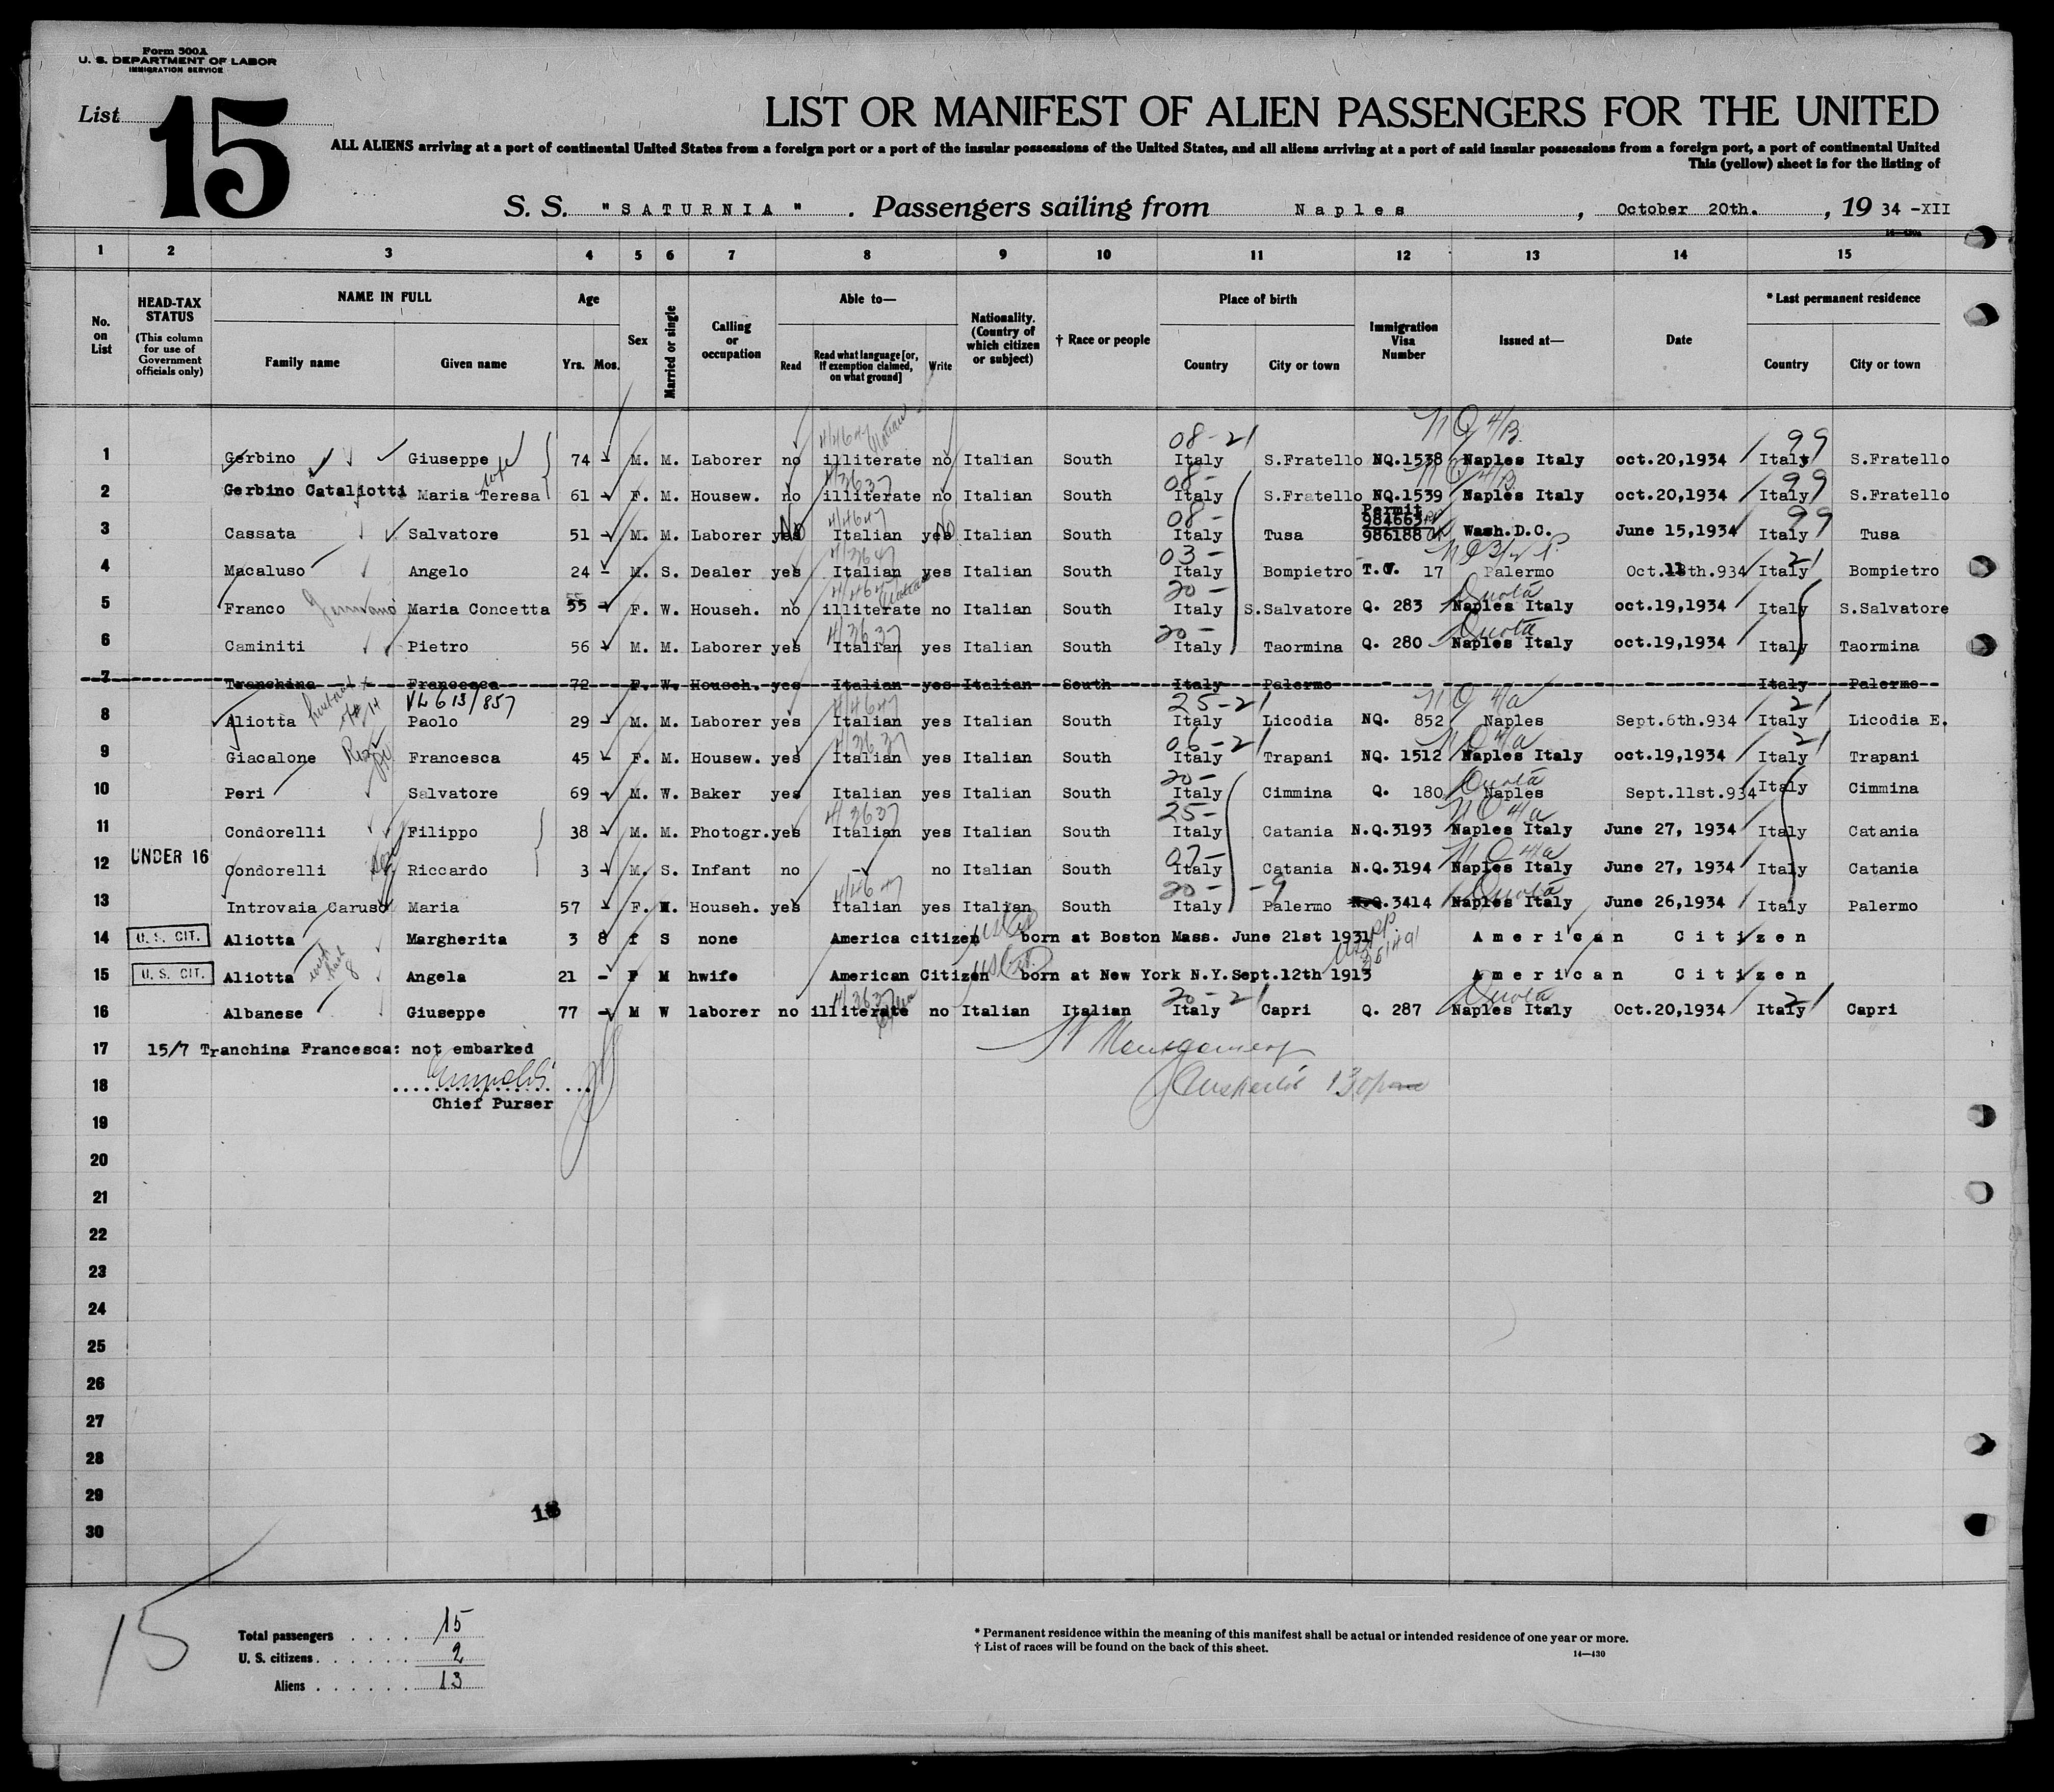 Form 500A
U. S. DEPARTMENT OF LABOR
IMMIGRATION SERVICE
List 15
LIST OR MANIFEST OF ALIEN PASSENGERS FOR THE UNITED
ALL ALIENS arriving at a port of continental United States from a foreign port or a port of the insular possessions of the United States, and all aliens arriving at a port of said insular possessions from a foreign port, a port of continental United
This (yellow) sheet is for the listing of
S. S. "SATURNIA". Passengers sailing from Naples, October 20th., 19 34 -XII
1 2 3 4 5 6 7 8 9 10 11 12 13 14 15
No. on List
HEAD-TAX STATUS (This column for use of Government officials only)
NAME IN FULL
Family name
Given name
Age
Yrs. Mos.
Sex
Married or single
Calling or occupation
Able to—
Read
Read what language [or, if exemption claimed, on what ground]
Write
Nationality. (Country of which citizen or subject)
† Race or people
Place of birth
Country
City or town
Immigration Visa Number
Issued at—
Date
* Last permanent residence
Country
City or town
08-21 NQ 4/B. 99
1 Gerbino Giuseppe 74 - M. M. Laborer no illiterate no Italian South Italy S.Fratello NQ.1538 Naples Italy oct.20,1934 Italy S.Fratello
wife 08- 99
2 Gerbino Cataliotti Maria Teresa 61 - F. M. Housew. no illiterate no Italian South Italy S.Fratello NQ.1539 Naples Italy oct.20,1934 Italy S.Fratello
Permit 984663
3 Cassata Salvatore 51 - M. M. Laborer yes No Italian yes No Italian South Italy Tusa 986188 Wash.D.C. June 15,1934 Italy Tusa
03- 21
4 Macaluso Angelo 24 - M. S. Dealer yes Italian yes Italian South Italy Bompietro T.V. 17 Palermo Oct.18th.934 Italy Bompietro
20- Quota
5 Franco Maria Concetta 55 - F. W. Househ. no illiterate no Italian South Italy S.Salvatore Q. 283 Naples Italy oct.19,1934 Italy S.Salvatore
20- Quota
6 Caminiti Pietro 56 - M. M. Laborer yes Italian yes Italian South Italy Taormina Q. 280 Naples Italy oct.19,1934 Italy Taormina
7 Tranchina Francesca 72 F. W. Househ. yes Italian yes Italian South Italy Palermo Italy Palermo
husband of 14 VL 613/857 25-21 NQ 4/a 21
8 Aliotta Paolo 29 - M. M. Laborer yes Italian yes Italian South Italy Licodia NQ. 852 Naples Sept.6th.934 Italy Licodia E.
06-21 NQ 4/a 21
9 Giacalone Francesca 45 - F. M. Housew. yes Italian yes Italian South Italy Trapani NQ. 1512 Naples Italy oct.19,1934 Italy Trapani
20- Quota
10 Peri Salvatore 69 - M. W. Baker yes Italian yes Italian South Italy Cimmina Q. 180 Naples Sept.11st.934 Italy Cimmina
25- NQ 4/a
11 Condorelli Filippo 38 - M. M. Photogr. yes Italian yes Italian South Italy Catania N.Q.3193 Naples Italy June 27, 1934 Italy Catania
UNDER 16 07- NQ 4/a
12 Condorelli Riccardo 3 - M. S. Infant no - no Italian South Italy Catania N.Q.3194 Naples Italy June 27, 1934 Italy Catania
20- -9 Quota
13 Introvaia Caruso Maria 57 - F. Househ. yes Italian yes Italian South Italy Palermo Q.3414 Naples Italy June 26,1934 Italy Palermo
14 U. S. CIT. Aliotta Margherita 3 8 f S none America citizen born at Boston Mass. June 21st 1931 American Citizen
15 U. S. CIT. Aliotta Angela 21 - F M hwife American Citizen born at New York N.Y.Sept.12th 1913 American Citizen
20-21 Quota 21
16 Albanese Giuseppe 77 - M W laborer no illiterate no Italian Italian Italy Capri Q. 287 Naples Italy Oct.20,1934 Italy Capri
17 15/7 Tranchina Francesca: not embarked
18
Chief Purser
19
20
21
22
23
24
25
26
27
28
29
30
15
Total passengers . . . . 15
U. S. citizens . . . . . . 2
Aliens . . . . . . 13
* Permanent residence within the meaning of this manifest shall be actual or intended residence of one year or more.
† List of races will be found on the back of this sheet.
14—430